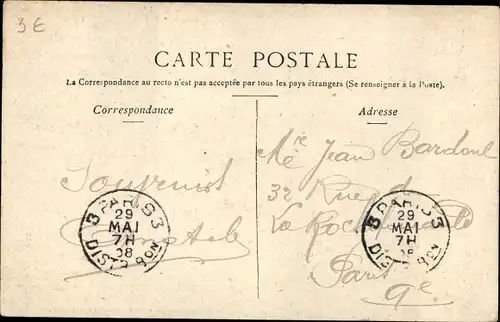 3€
CARTE POSTALE
La Correspondance au recto n'est pas acceptée par tous les pays étrangers (Se renseigner à la Poste).
Correspondance
Adresse
Jean
32 Rue de
La
Paris
9e
PARIS 3
29
MAI
7H
08
DISTRIBON
PARIS 3
29
MAI
7H
08
DISTRIBON